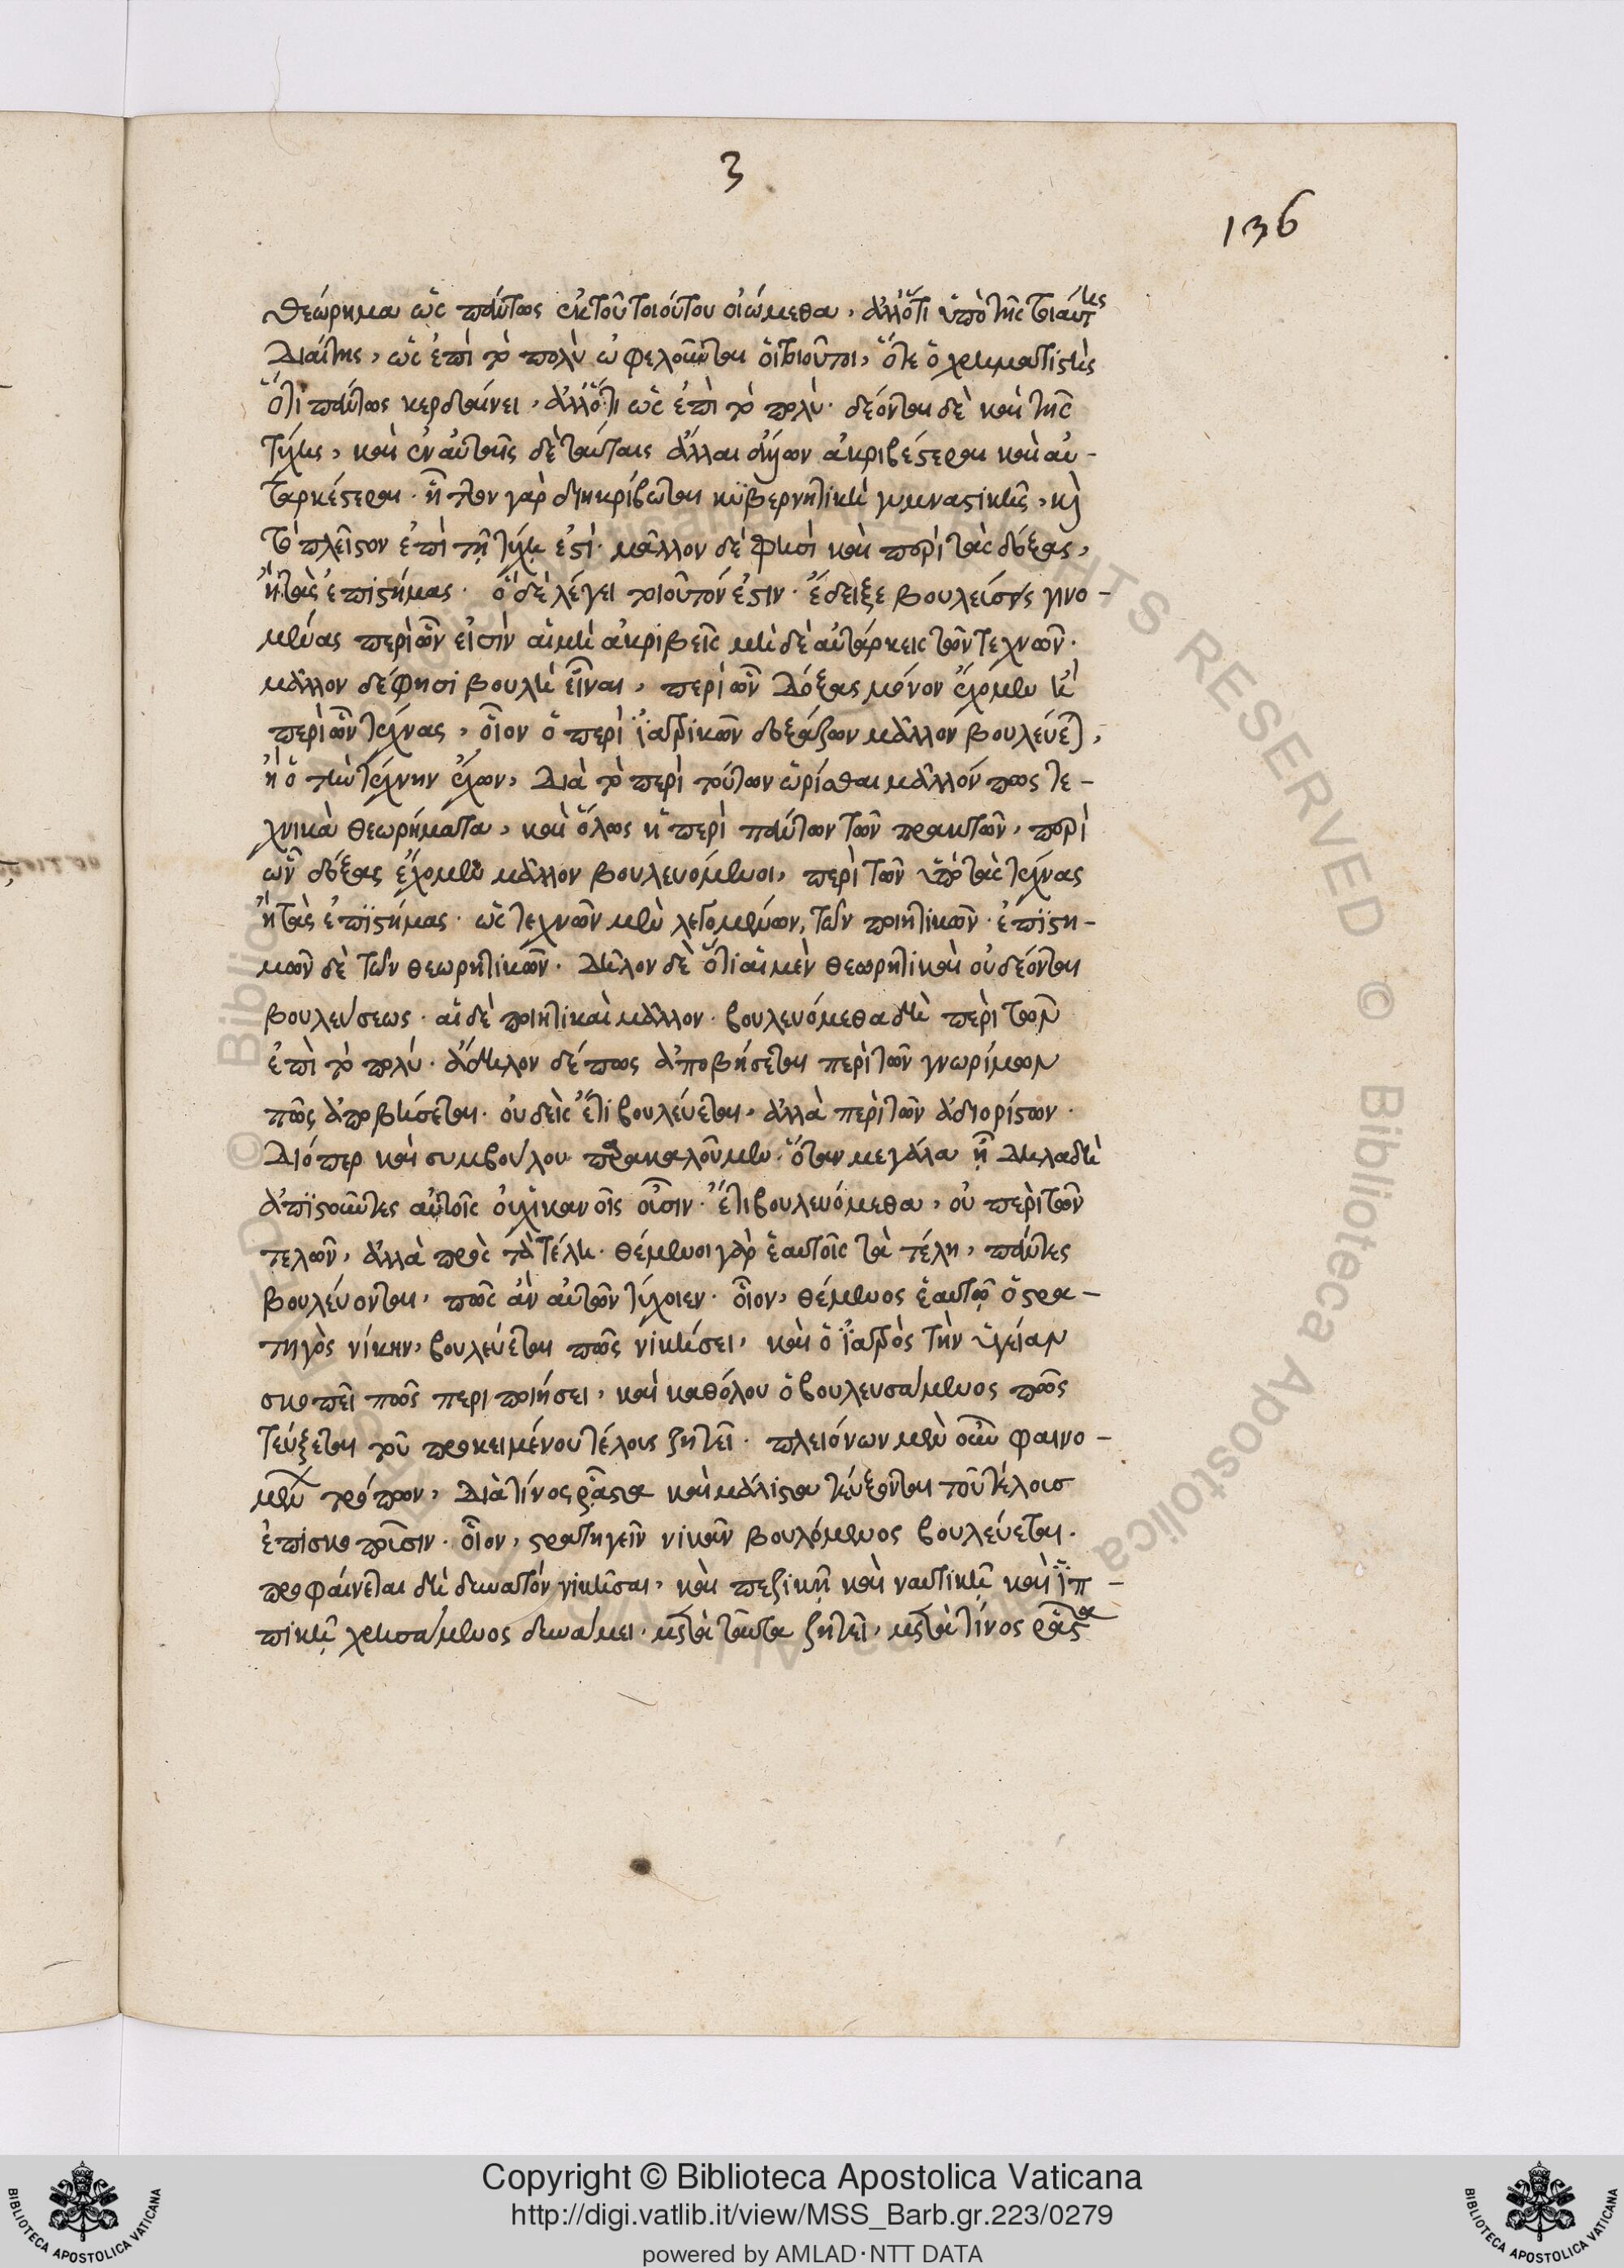 3
136
θεώρημα ὡς πάντως ἐκ τοῦ τοιούτου οἰώμεθα, ἀλλ' ὅτι ὑπὸ τῆς τοιαύτης
διαίτης, ὡς ἐπὶ τὸ πολὺ ὠφελοῦνται οἱ τοιοῦτοι, ὅτε ὁ χρηματιστὴς
ὅτι πάντως κερδαίνει, ἀλλ' ὅτι ὡς ἐπὶ τὸ πολύ. δέονται δὲ καὶ τῆς
τύχης, καὶ ἐν αὐταῖς δὲ ταύταις ἄλλαι ἄλλων ἀκριβέστεραι καὶ αὐ-
ταρκέστεραι. ἧττον γὰρ διηκρίβωται κυβερνητικὴ γυμναστικῆς, καὶ
τὸ πλεῖστον ἐπὶ τῇ τύχῃ ἐστί. μᾶλλον δέ φησι καὶ περὶ τὰς δόξας,
ἢ τὰς ἐπιστήμας. ὃ δὲ λέγει τοιοῦτόν ἐστιν. ἔδειξε βουλεύσεις γινο-
μένας περὶ ὧν εἰσὶν αἱ μὴ ἀκριβεῖς μὴ δὲ αὐτάρκεις τῶν τεχνῶν.
μᾶλλον δέ φησι βουλὴ εἶναι, περὶ ὧν δόξας μόνον ἔχομεν ἢ
περὶ ὧν τέχνας, οἷον ὁ περὶ ἰατρικῶν δοξάζων μᾶλλον βουλεύεται,
ἢ ὁ τὴν τέχνην ἔχων, διὰ τὸ περὶ τούτων ὡρίσθαι μᾶλλόν πως τε-
χνικὰ θεωρήματα, καὶ ὅλως ἢ περὶ πάντων τῶν πρακτῶν, περὶ
ὧν δόξας ἔχομεν μᾶλλον βουλευόμενοι, περὶ τῶν ὑπὸ τὰς τέχνας
ἢ τὰς ἐπιστήμας. ὡς τεχνῶν μὲν λεγομένων, τῶν ποιητικῶν. ἐπιστη-
μῶν δὲ τῶν θεωρητικῶν. δῆλον δὲ ὅτι αἱ μὲν θεωρητικαὶ οὐ δέονται
βουλεύσεως. αἱ δὲ ποιητικαὶ μᾶλλον. βουλευόμεθα δὴ περὶ τῶν
ἐπὶ τὸ πολύ. ἄδηλον δέ πως ἀποβήσεται περὶ τῶν γνωρίμων
πῶς ἀποβήσεται. οὐδεὶς ἔτι βουλεύεται, ἀλλὰ περὶ τῶν ἀδιορίστων.
διόπερ καὶ συμβούλου παρακαλοῦμεν. ὅταν μεγάλα ᾖ δηλαδὴ
ἀπιστοῦντες αὐτοῖς οὐχ ἱκανοῖς οὖσιν. ἔτι βουλευόμεθα, οὐ περὶ τῶν
τελῶν, ἀλλὰ πρὸς τὰ τέλη. θέμενοι γὰρ ἑαυτοῖς τὰ τέλη, πάντες
βουλεύονται, πῶς ἂν αὐτῶν τύχοιεν. οἷον, θέμενος ἑαυτῷ ὁ στρα-
τηγὸς νίκην, βουλεύεται πῶς νικήσει, καὶ ὁ ἰατρὸς τὴν ὑγείαν
σκοπεῖ πῶς περιποιήσει, καὶ καθόλου ὁ βουλευσάμενος πῶς
τεύξεται τοῦ προκειμένου τέλους ζητεῖ. πλειόνων μὲν οὖν φαινο-
μένων τρόπων, διὰ τίνος ῥᾷστα καὶ μάλιστα τεύξονται τοῦ τέλους
ἐπισκοποῦσιν. οἷον, στρατηγεῖν νικᾶν βουλόμενος βουλεύεται.
προφαίνεται δὴ δυνατὸν νικῆσαι, καὶ πεζικῇ καὶ ναυτικῇ καὶ ἱπ-
πικῇ χρησάμενος δυνάμει. μετὰ ταῦτα ζητεῖ, μετὰ τίνος ῥᾷστα
Copyright © Biblioteca Apostolica Vaticana
http://digi.vatlib.it/view/MSS_Barb.gr.223/0279
powered by AMLAD·NTT DATA